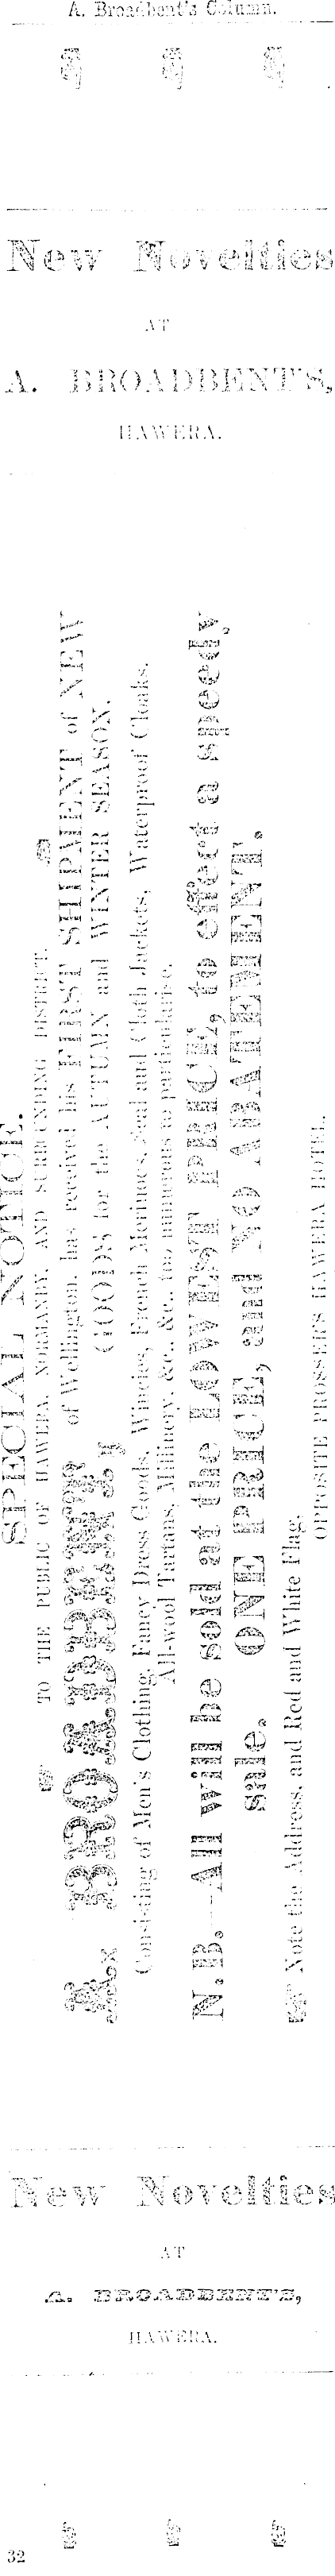 A. Broadbent's Column.
New Novelties
AT
A. BROADBENT'S,
HAWERA.
SPECIAL NOTICE.
TO THE PUBLIC OF HAWERA, NORMANBY, AND SURROUNDING DISTRICT.
A. BROADBENT, of Wellington, has received his FIRST SHIPMENT of NEW
GOODS for the AUTUMN and WINTER SEASON,
Consisting of Men's Clothing, Fancy Dress Goods, Winceys, French Merinoes, Seal and Cloth Jackets, Waterproof Cloaks,
All-wool Tartans, Millinery, &c., &c., too numerous to particularise.
N.B.—All will be sold at the LOWEST PRICE, to effect a speedy
sale. ONE PRICE, and NO ABATEMENT.
Note the Address, and Red and White Flag,
OPPOSITE PROSSER'S HAWERA HOTEL.
New Novelties
AT
A. BROADBENT'S,
HAWERA.
32